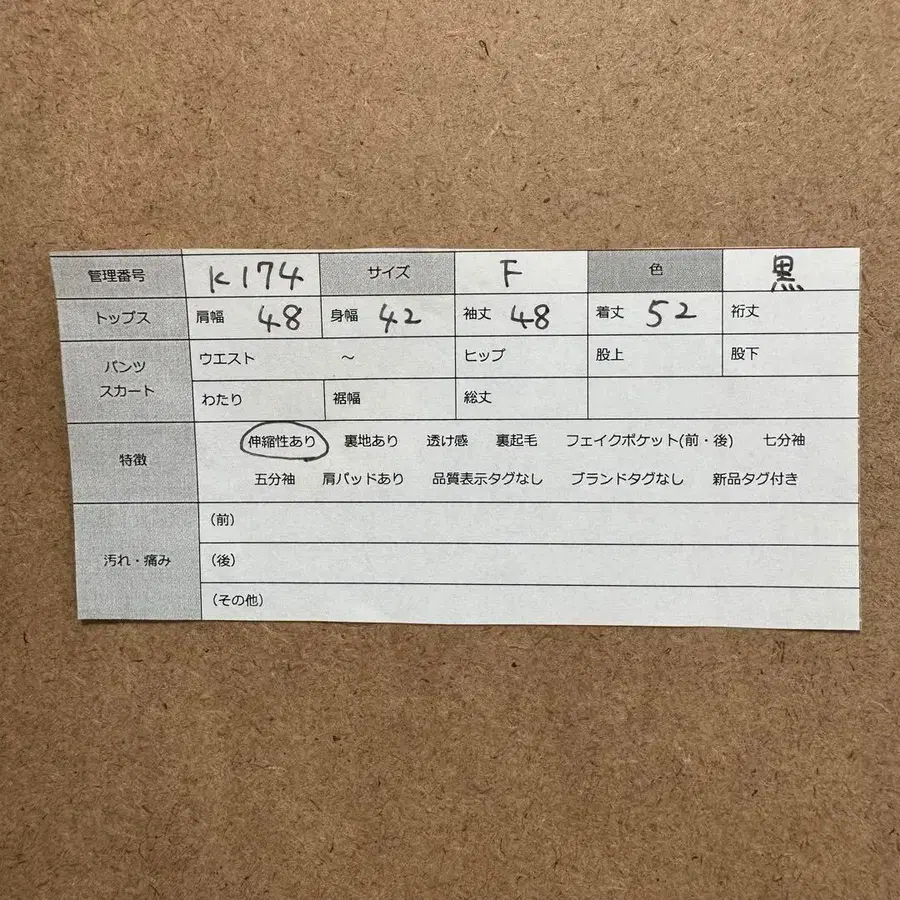 管理番号 K174 サイズ F 色 黒
トップス 肩幅 48 身幅 42 袖丈 48 着丈 52 裄丈
パンツ スカート ウエスト ～ ヒップ 股上 股下
わたり 裾幅 総丈
特徴 伸縮性あり 裏地あり 透け感 裏起毛 フェイクポケット(前・後) 七分袖
五分袖 肩パッドあり 品質表示タグなし ブランドタグなし 新品タグ付き
汚れ・痛み (前)
(後)
(その他)